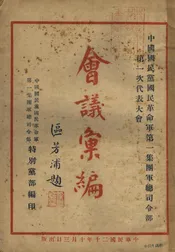 中國國民黨國民革命軍第一集團軍總司令部
第一次代表大會
會議彙編
區芳浦題
中國國民黨國民革命軍
第一集團軍總司令部
特別黨部編印
中華民國二十年十月三日出版